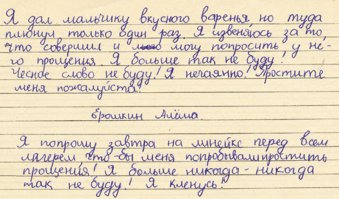 Я дал мальчику вкусного варенья, но туда
плюнул только один раз. Я извеняюсь за то,
что совершил и могу попросить у не-
го прощения. Я больше так не буду!
Чесное слово не буду! Я нечаянно! Простите
меня пожалуйста!
Ерошкин Алёша.
Я попрошу завтра на линейке перед всем
лагерем, что-бы меня попробывали простить
прощения! Я больше никогда-никогда
так не буду! Я кленусь!